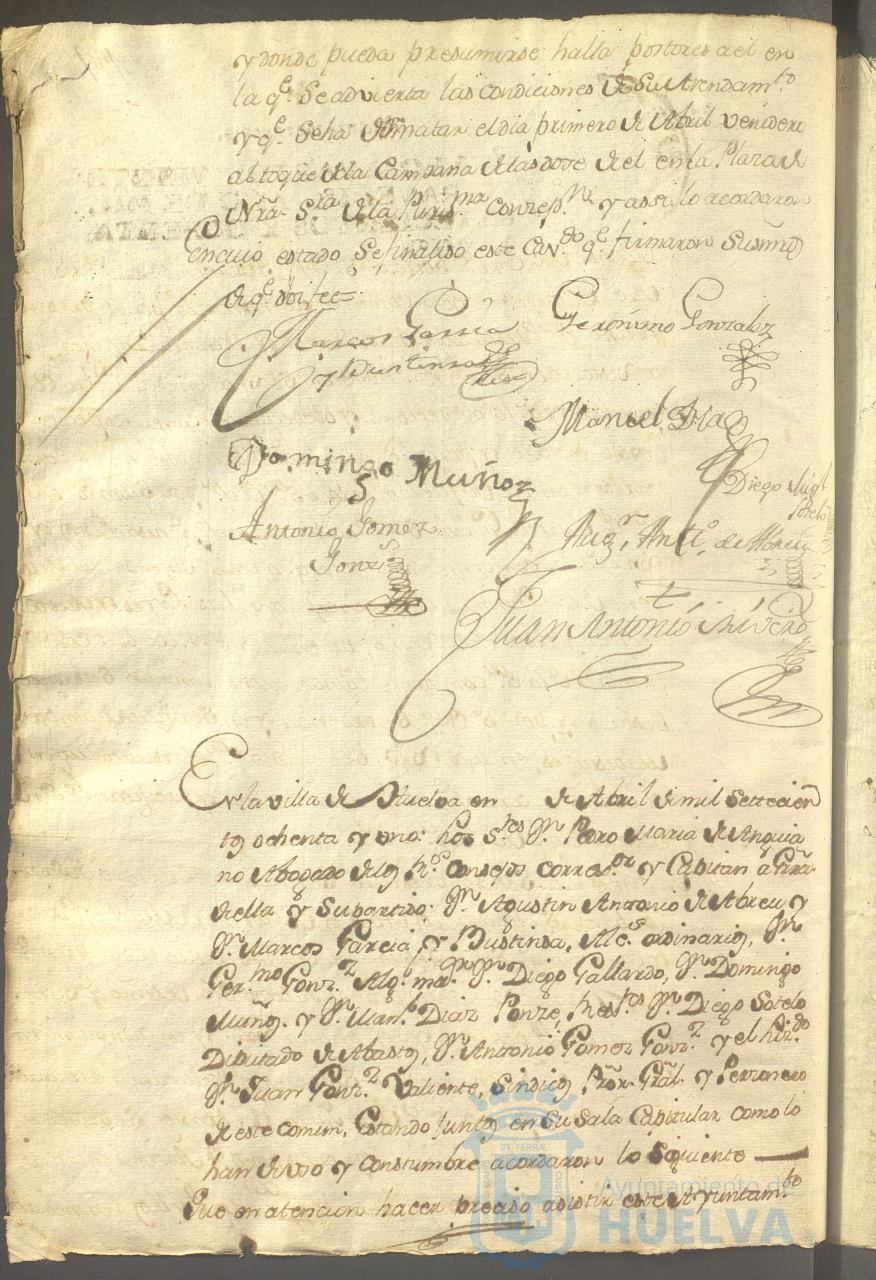 y donde pueda presumirse halla postores a el en
la qe. Se advierta las condiciones de Su Arrendamto.
y qe. Seha de Rematar el dia primero de Abril venidero
al toque de la Campana de las doze de el en la Plaza de
Nrã. Sra. de la Puris.ma Conzepn. y assi lo acordaron
En cuio estado Se finaliso este Cav.do qe. firmaron Susmrds
de qe. doi fee=
Marcos Garcia
y Bustinsa
Geronimo Gonzalez
Manuel Diaz
Domingo Muñoz
Diego
Sotelo
Antonio Gomez
Gonz
Antto. de Abreu
Juan Antonio Rivero
En la villa de Huelva en de Abril de mil Settecien
tos ochenta y uno: los Sres. Dn. Pedro Maria de Anguia
no Abogado de los Rs. Consejos Corregr. y Capitan à Grrã
de ella y Su partido; Dn. Agustin Antonio de Abreu y
Dn. Marcos Garcia, y Bustinsa, Alcs. ordinarios, Dn.
Germo. Gonz.z Algl. mar. Dn. Diego Gallardo, Dn. Domingo
Muños. y Dn. Manl. Diaz Ponze, Dn. Diego Sotelo
Diputado de Abastos, Dn. Antonio Gomez Gonz.z y el
Dn. Juan Gonz.z Valiente, Sindicos Prõr. Grãl. y Perzonero
de este comun, Estando Juntos en Su Sala Capitular como lo
han de uso y Constumbre acordaron lo Siguiente
Que en atencion hacer preciso asistir este Ayuntam.to
Ayuntamiento de
HUELVA